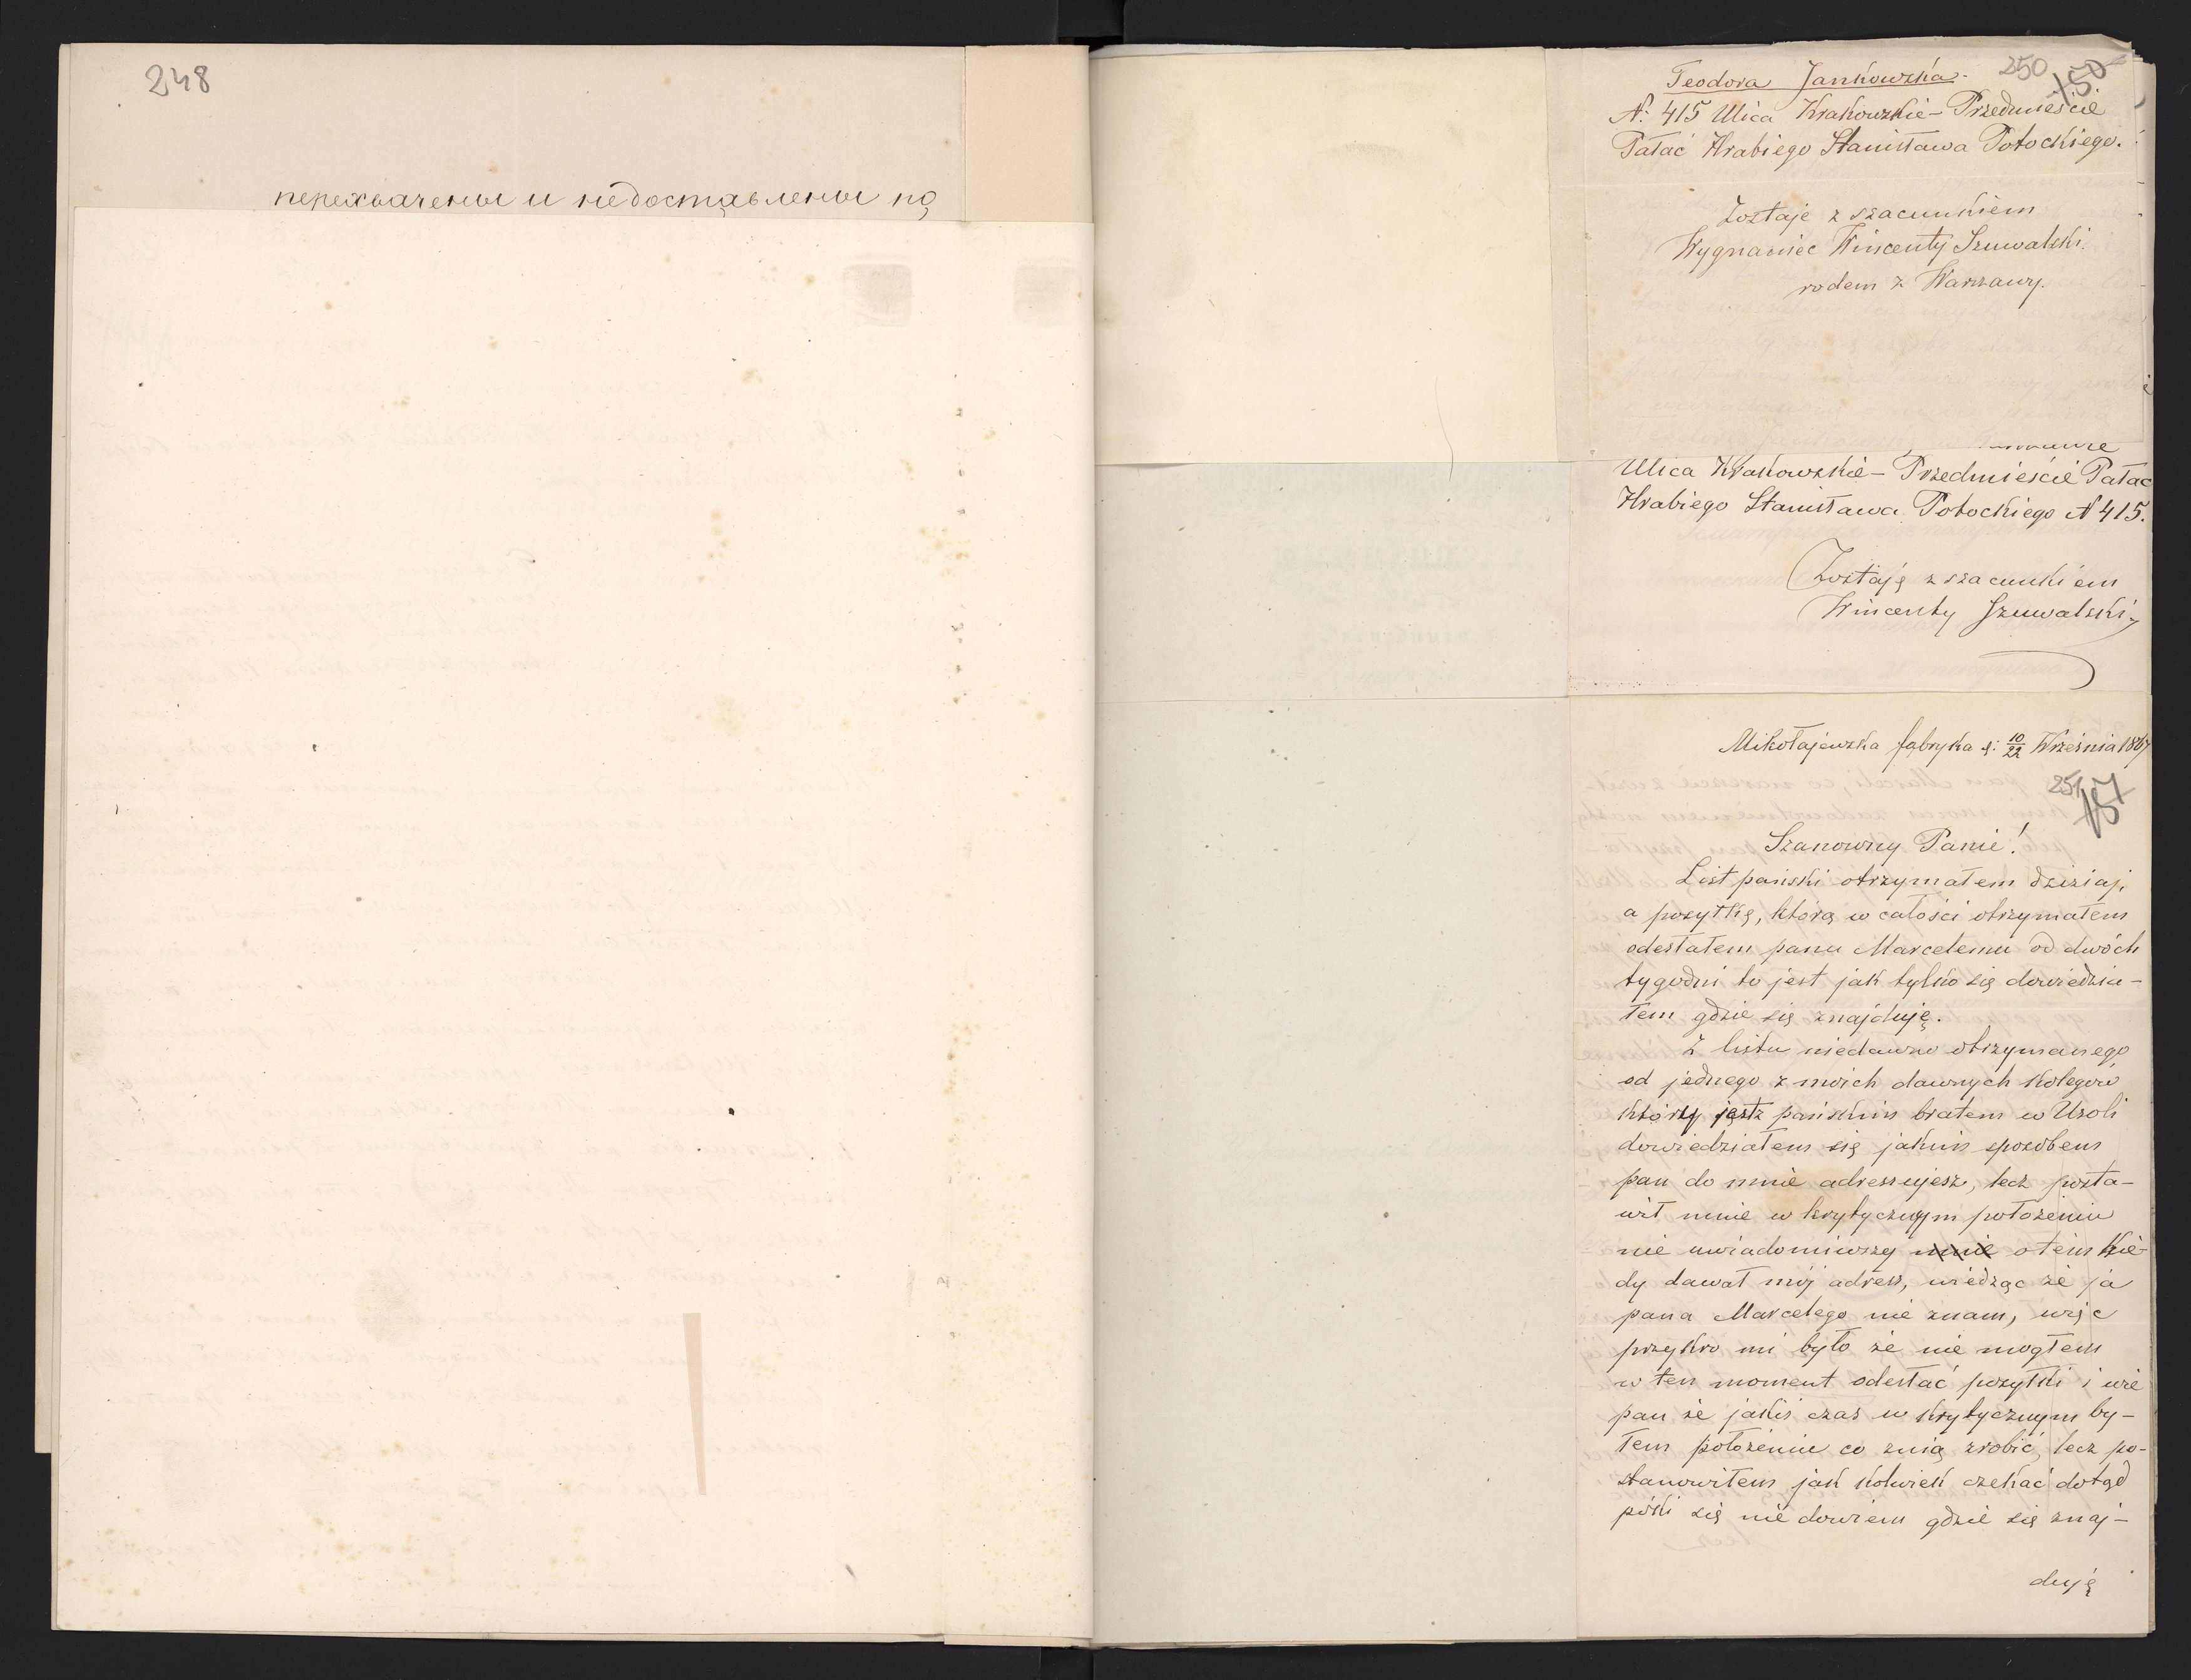 248
перехвачены и недоставлены по
250
150
Teodora Jankowska.
N: 415 Ulica Krakowskie-Przedmieście
Pałac Hrabiego Stanisława Potockiego.
Zostaje z szacunkiem
Wygnaniec Wincenty Szuwalski.
rodem z Warszawy.
Ulica Krakowskie-Przedmieście Pałac
Hrabiego Stanisława Potockiego N 415.
Zostaję z szacunkiem
Wincenty Szuwalski
Mikołajewska fabryka d: 10/22 Września 1867
251
151
Szanowny Panie!
List pański otrzymałem dzisiaj,
a posyłkę, którą w całości otrzymałem
odesłałem panu Marcelemu od dwóch
tygodni to jest jak tylko się dowiedzia-
łem gdzie się znajduję.
Z listu niedawno otrzymanego
od jednego z moich dawnych kolegów
który jest z pańskim bratem w Usoli
dowiedziałem się jakim sposobem
pan do mnie adressujesz, lecz posta-
wił mnie w krytycznym położeniu
nie uwiadomiwszy mnie o tem kie-
dy dawał mój adress, wiedząc że ja
pana Marcelego nie znam, więc
przykro mi było że nie mogłem
w ten moment odesłać posyłki i wie
pan że jakiś czas w krytycznym by-
łem położeniu co znią zrobić, lecz po-
stanowiłem jak kolwiek czekać dotąd
póki się nie dowiem gdzie się znaj-
duję